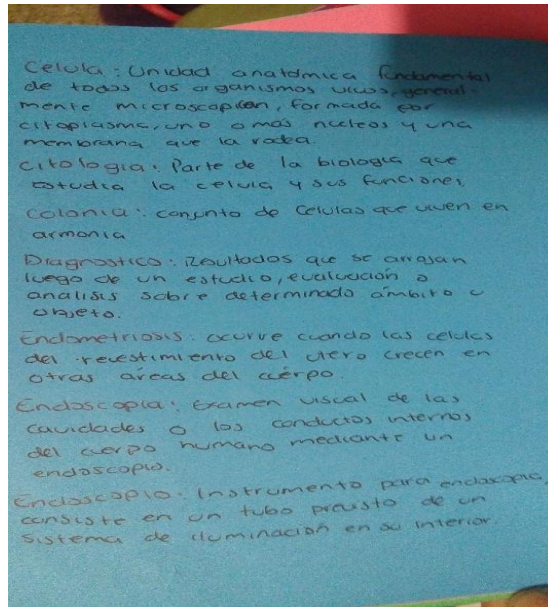 Celula: Unidad anatómica fundamental
de todos los organismos vivos, general-
mente microscopica, formada por
citoplasma, uno o mas nucleos y una
membrana que la rodea.
Citologia: Parte de la biologia que
estudia la celula y sus funciones,
Colonia: conjunto de Celulas que viven en
armonia
Diagnostico: Resultados que se arrojan
luego de un estudio, evaluación o
analisis sobre determinado ámbito u
objeto.
Endometriosis: ocurre cuando las celulas
del revestimiento del utero crecen en
otras áreas del cuérpo.
Endoscopia: Examen viscal de las
cavidades o los conductos internos
del cuerpo humano mediante un
endoscopio.
Endoscopio: Instrumento para endoscopia,
consiste en un tubo provisto de un
sistema de iluminación en su interior.